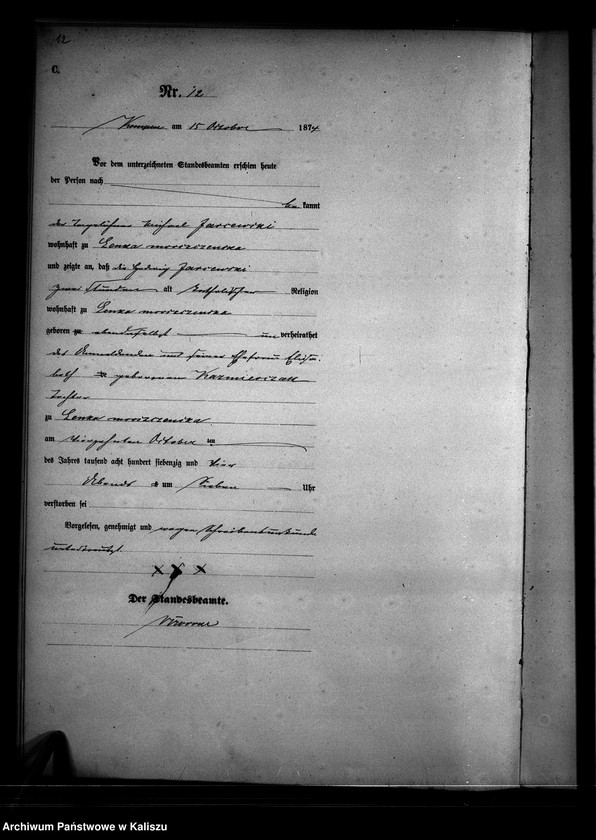 12
C.
Nr. 12
am 15 October 1874
Vor dem unterzeichneten Standesbeamten erschien heute
der Person nach
be kannt
der Tagelöhner Michael Jarcewski
wohnhaft zu Lenka mroczczenska
und zeigte an, daß die Hedwig Jarcewski
zwei Stunden alt katholischer Religion
wohnhaft zu Lenka mroczczenska
geboren zu ebendaselbst un verheirathet
des Anmeldenden und seiner Ehefrau Elisa-
beth geborenen Kazmierczak
Tochter
zu Lenka
am vierzehnten October
des Jahres tausend acht hundert siebenzig und vier
Abends um sieben Uhr
verstorben sei
Vorgelesen, genehmigt und wegen Schreibensunkunde
unterkreuzt
X X X
Der Standesbeamte.
Archiwum Państwowe w Kaliszu